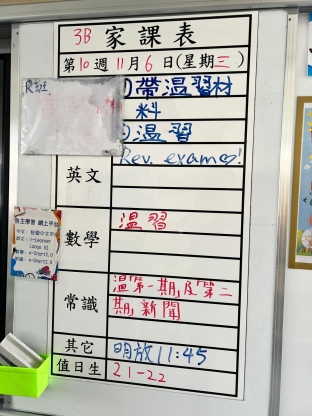 3B 家課表
第10週11月6日(星期三)
R班
①帶溫習材
料
②溫習
英文
Rev. exam♡!
數學
溫習
常識
溫第一期,及第二
期,新聞
其它
明放11:45
值日生
21-22
自主學習 網上平台